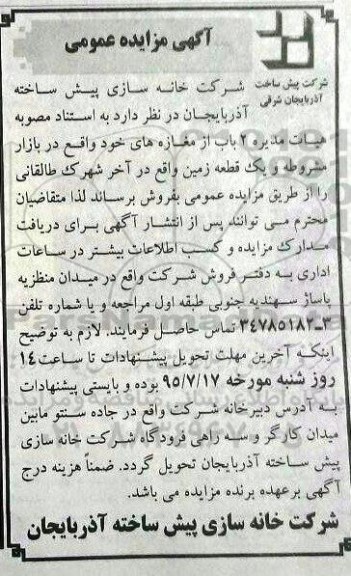 آگهی مزایده عمومی
شرکت پیش ساخت
آذربایجان شرقی
شرکت خانه سازی پیش ساخته
آذربایجان در نظر دارد به استناد مصوبه
هیات مدیره ۲ باب از مغازه های خود واقع در بازار
مشروطه و یک قطعه زمین واقع در آخر شهرک طالقانی
را از طریق مزایده عمومی بفروش برساند لذا متقاضیان
محترم می توانند پس از انتشار آگهی برای دریافت
مدارک مزایده و کسب اطلاعات بیشتر در ساعات
اداری به دفتر فروش شرکت واقع در میدان منظریه
پاساژ سهندیه جنوبی طبقه اول مراجعه و یا شماره تلفن
۳ـ۳۴۷۸۵۱۸۲ تماس حاصل فرمایند. لازم به توضیح
اینکه آخرین مهلت تحویل پیشنهادات تا ساعت ۱۴
روز شنبه مورخه ۹۵/۷/۱۷ بوده و بایستی پیشنهادات
به آدرس دبیرخانه شرکت واقع در جاده سنتو مابین
میدان کارگر و سه راهی فرودگاه شرکت خانه سازی
پیش ساخته آذربایجان تحویل گردد. ضمناً هزینه درج
آگهی برعهده برنده مزایده می باشد.
شرکت خانه سازی پیش ساخته آذربایجان